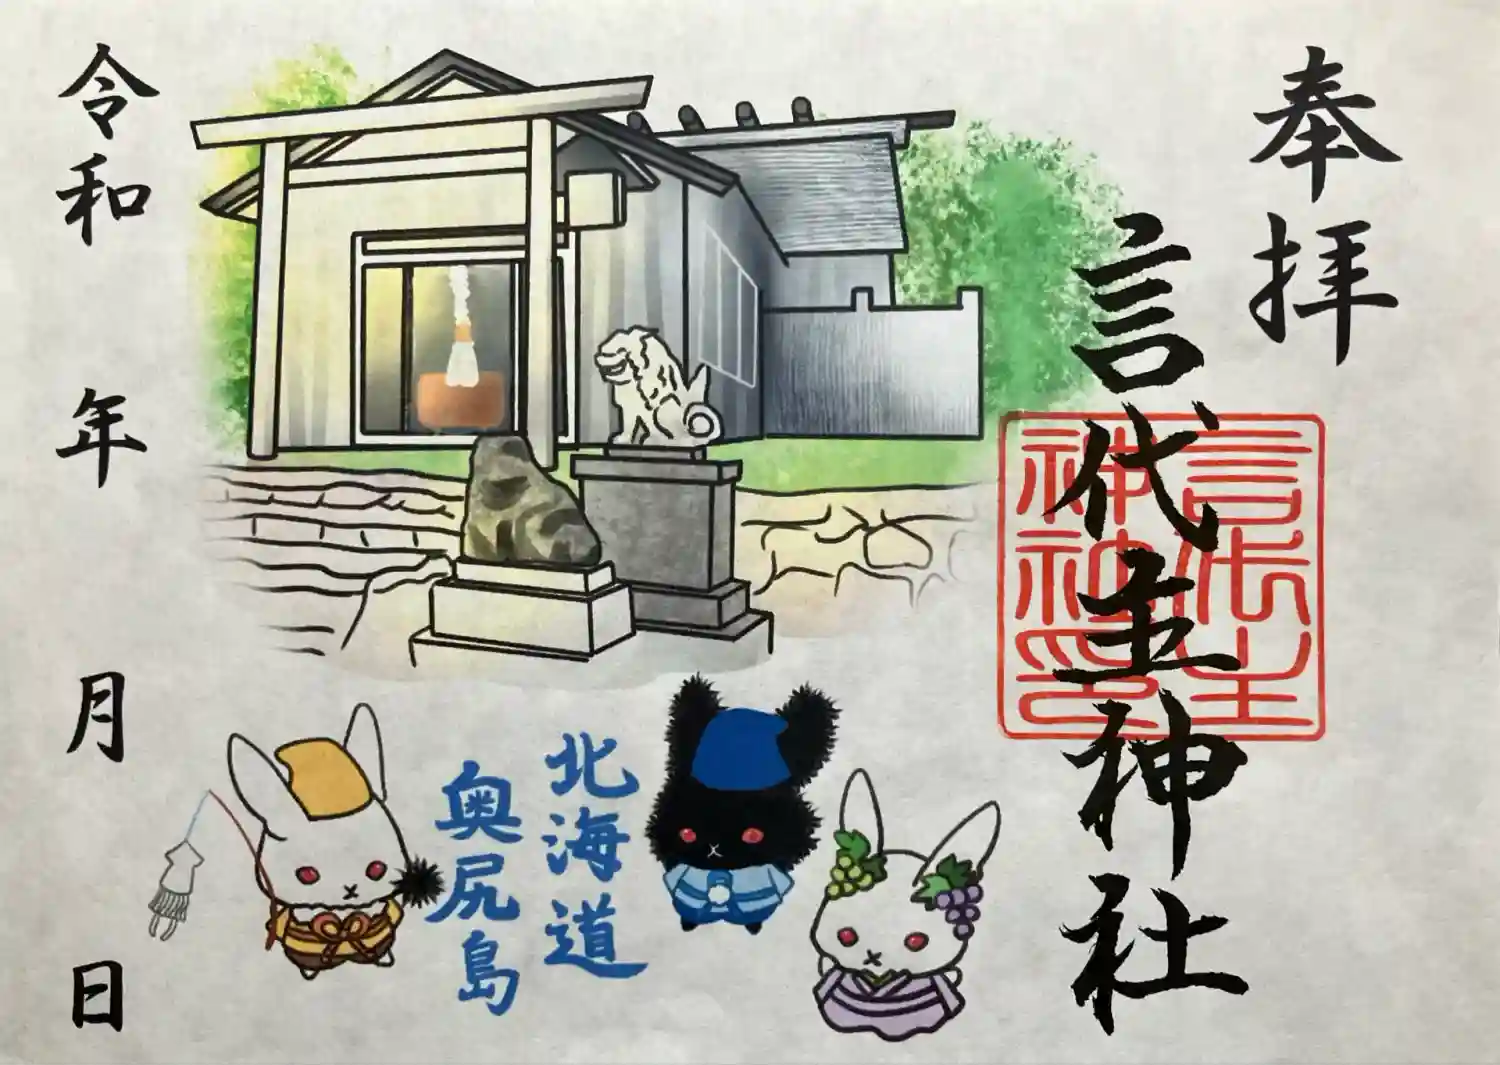 奉拝
言代主神社
言代主
神社神印
北海道
奥尻島
令和　年　月　日